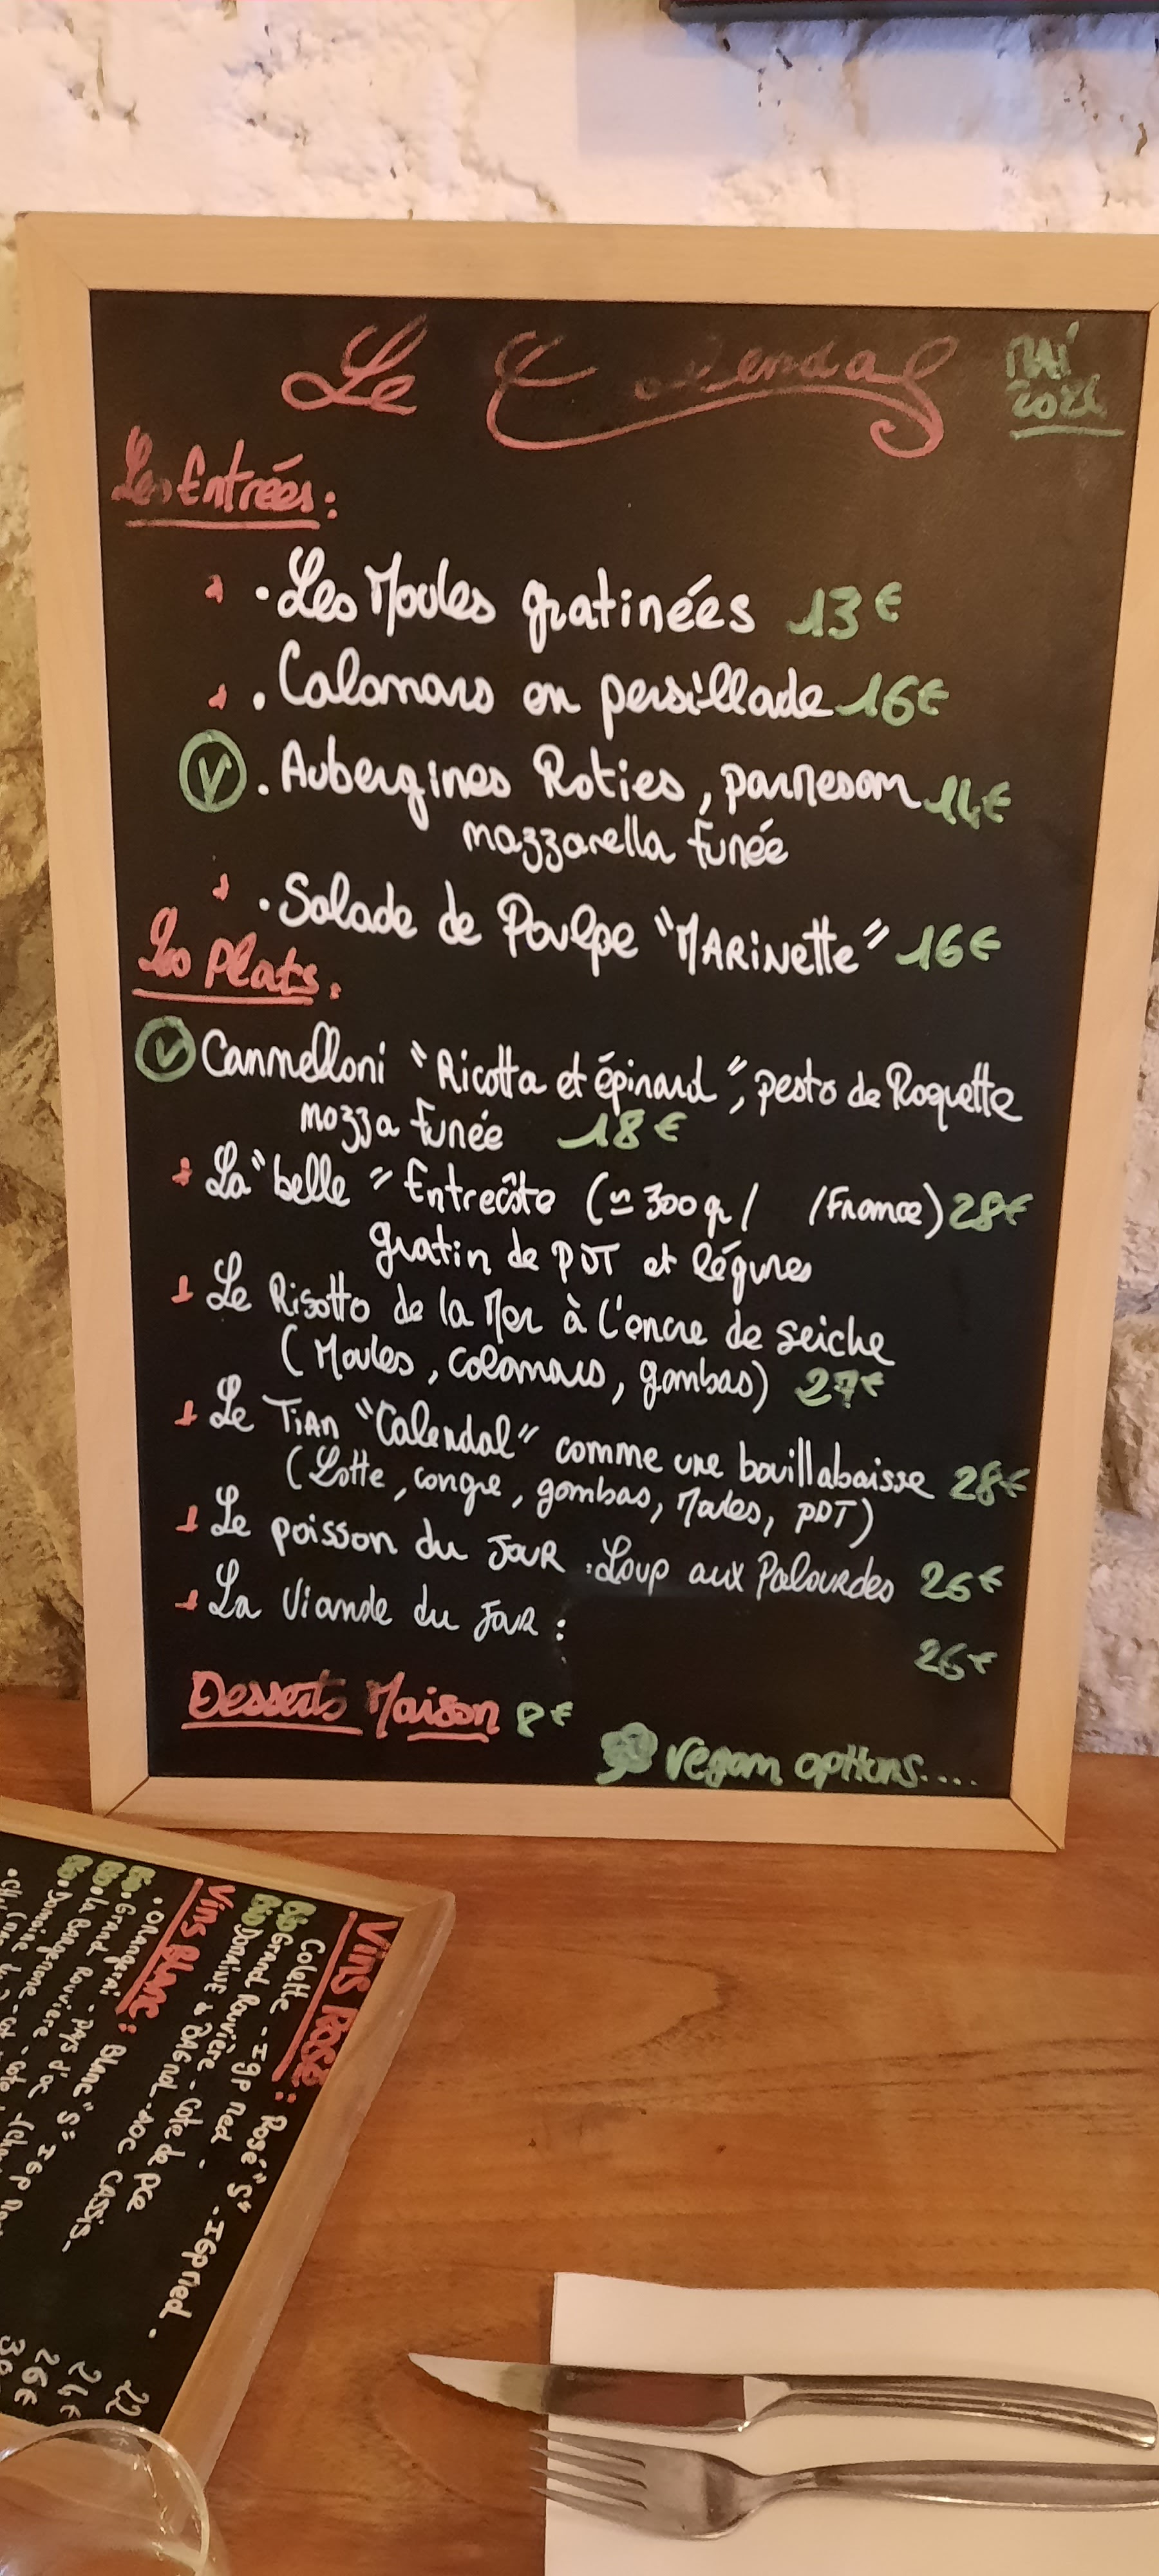 Le Calendal
Mai
Les Entrées :
. Les Moules gratinées 13€
. Calamars en persillade 16€
V . Aubergines Roties, parmesan 14€
mozzarella fumée
. Salade de Poulpe "MARiNette" 16€
Les Plats.
V Cannelloni "Ricotta et épinard", pesto de Roquette
mozza fumée 18€
La "belle" Entrecôte (≃ 300 gr / /France) 28€
gratin de PDT et légumes
Le Risotto de la Mer à l'encre de seiche
(Moules, calamars, gambas) 27€
Le TiAn "Calendal" comme une bouillabaisse 28€
(Lotte, congre, gambas, Moules, PDT)
Le poisson du JouR : Loup aux Palourdes 26€
La Viande du JouR :
26€
Desserts Maison 8€
Vegan options....
Vins Rosé :
Colette - Rosé "S" - IGP Med. - 22
Bio Grand Rouvière - Igp Med -
Bio Domaine de BAGnol - AOC Cassis -
Vins Blanc :
. Orangerai - Pays d'oc
Blanc "S" IGP
Bio. Grand Rouvière
24€
26€